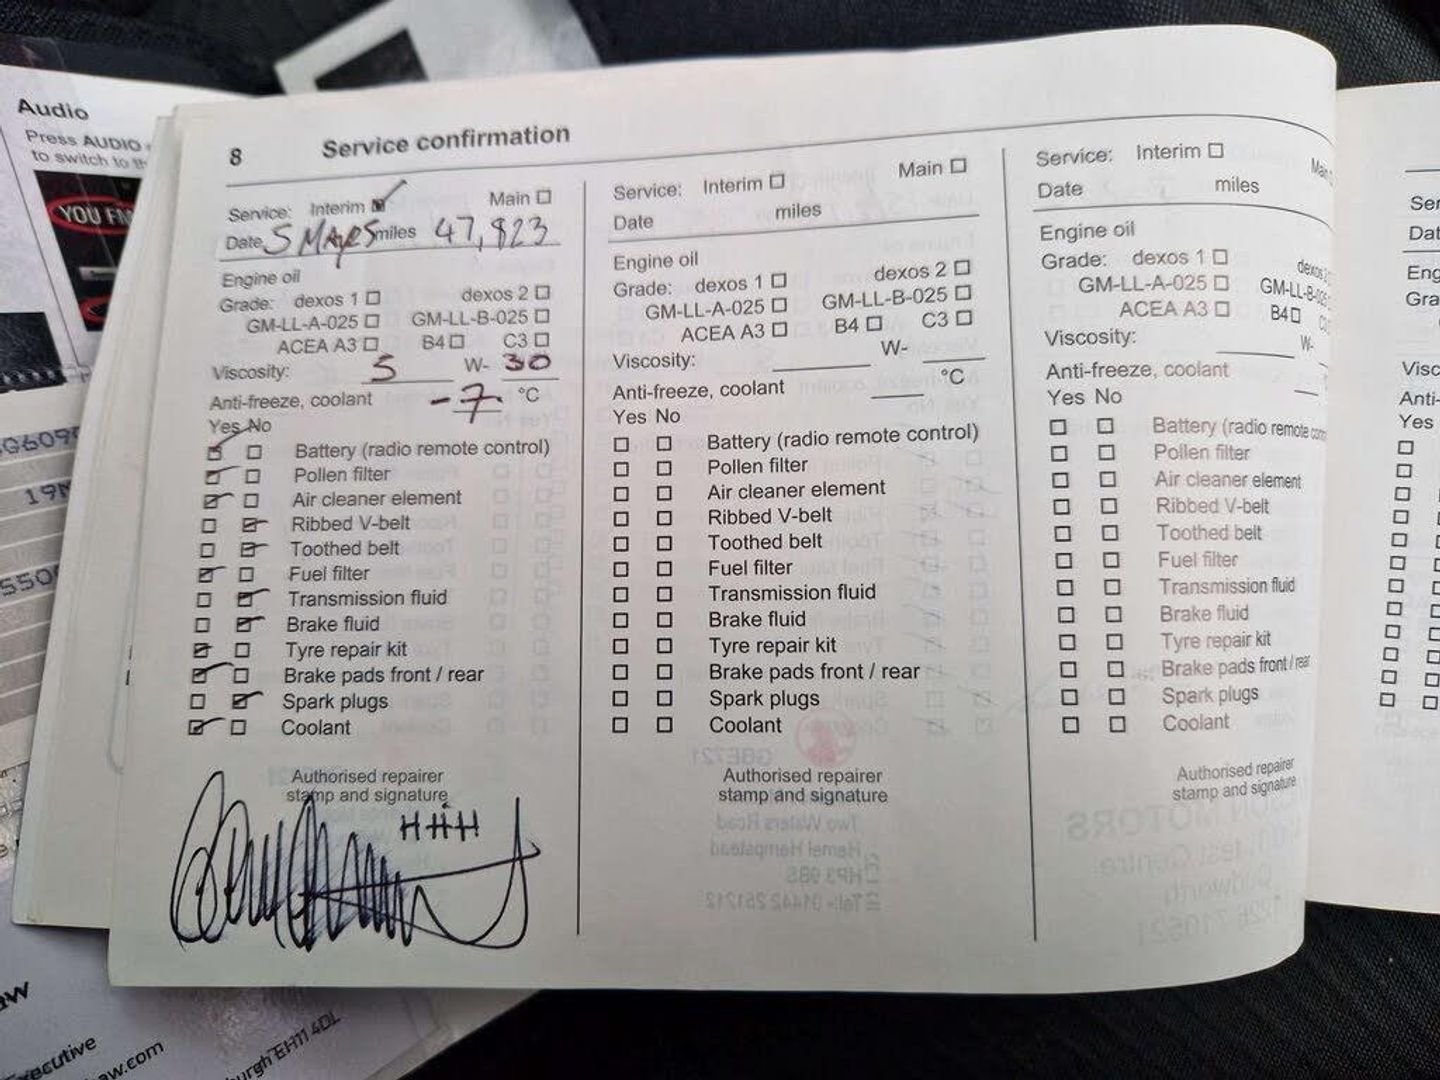 Audio
Press AUDIO
to switch to th
YOU FM
8 Service confirmation
Service: Interim Main
Date miles 47,823
Engine oil
Grade: dexos 1 dexos 2
GM-LL-A-025 GM-LL-B-025
ACEA A3 B4 C3
Viscosity: 5 W- 30
Anti-freeze, coolant -7 °C
Yes No
Battery (radio remote control)
Pollen filter
Air cleaner element
Ribbed V-belt
Toothed belt
Fuel filter
Transmission fluid
Brake fluid
Tyre repair kit
Brake pads front / rear
Spark plugs
Coolant
Authorised repairer
stamp and signature
Service: Interim Main
Date miles
Engine oil
Grade: dexos 1 dexos 2
GM-LL-A-025 GM-LL-B-025
ACEA A3 B4 C3
Viscosity: W-
Anti-freeze, coolant °C
Yes No
Battery (radio remote control)
Pollen filter
Air cleaner element
Ribbed V-belt
Toothed belt
Fuel filter
Transmission fluid
Brake fluid
Tyre repair kit
Brake pads front / rear
Spark plugs
Coolant
Authorised repairer
stamp and signature
Service: Interim Main
Date miles
Engine oil
Grade: dexos 1 dexos
GM-LL-A-025 GM-LL-B-025
ACEA A3 B4
Viscosity: W-
Anti-freeze, coolant
Yes No
Battery (radio remote
Pollen filter
Air cleaner element
Ribbed V-belt
Toothed belt
Fuel filter
Transmission fluid
Brake fluid
Tyre repair kit
Brake pads front / rear
Spark plugs
Coolant
Authorised repairer
stamp and signature
Ser
Dat
Eng
Gra
Visc
Anti-
Yes
19M
550
aw
xecutive
aw.com
burgh EH11 4DL